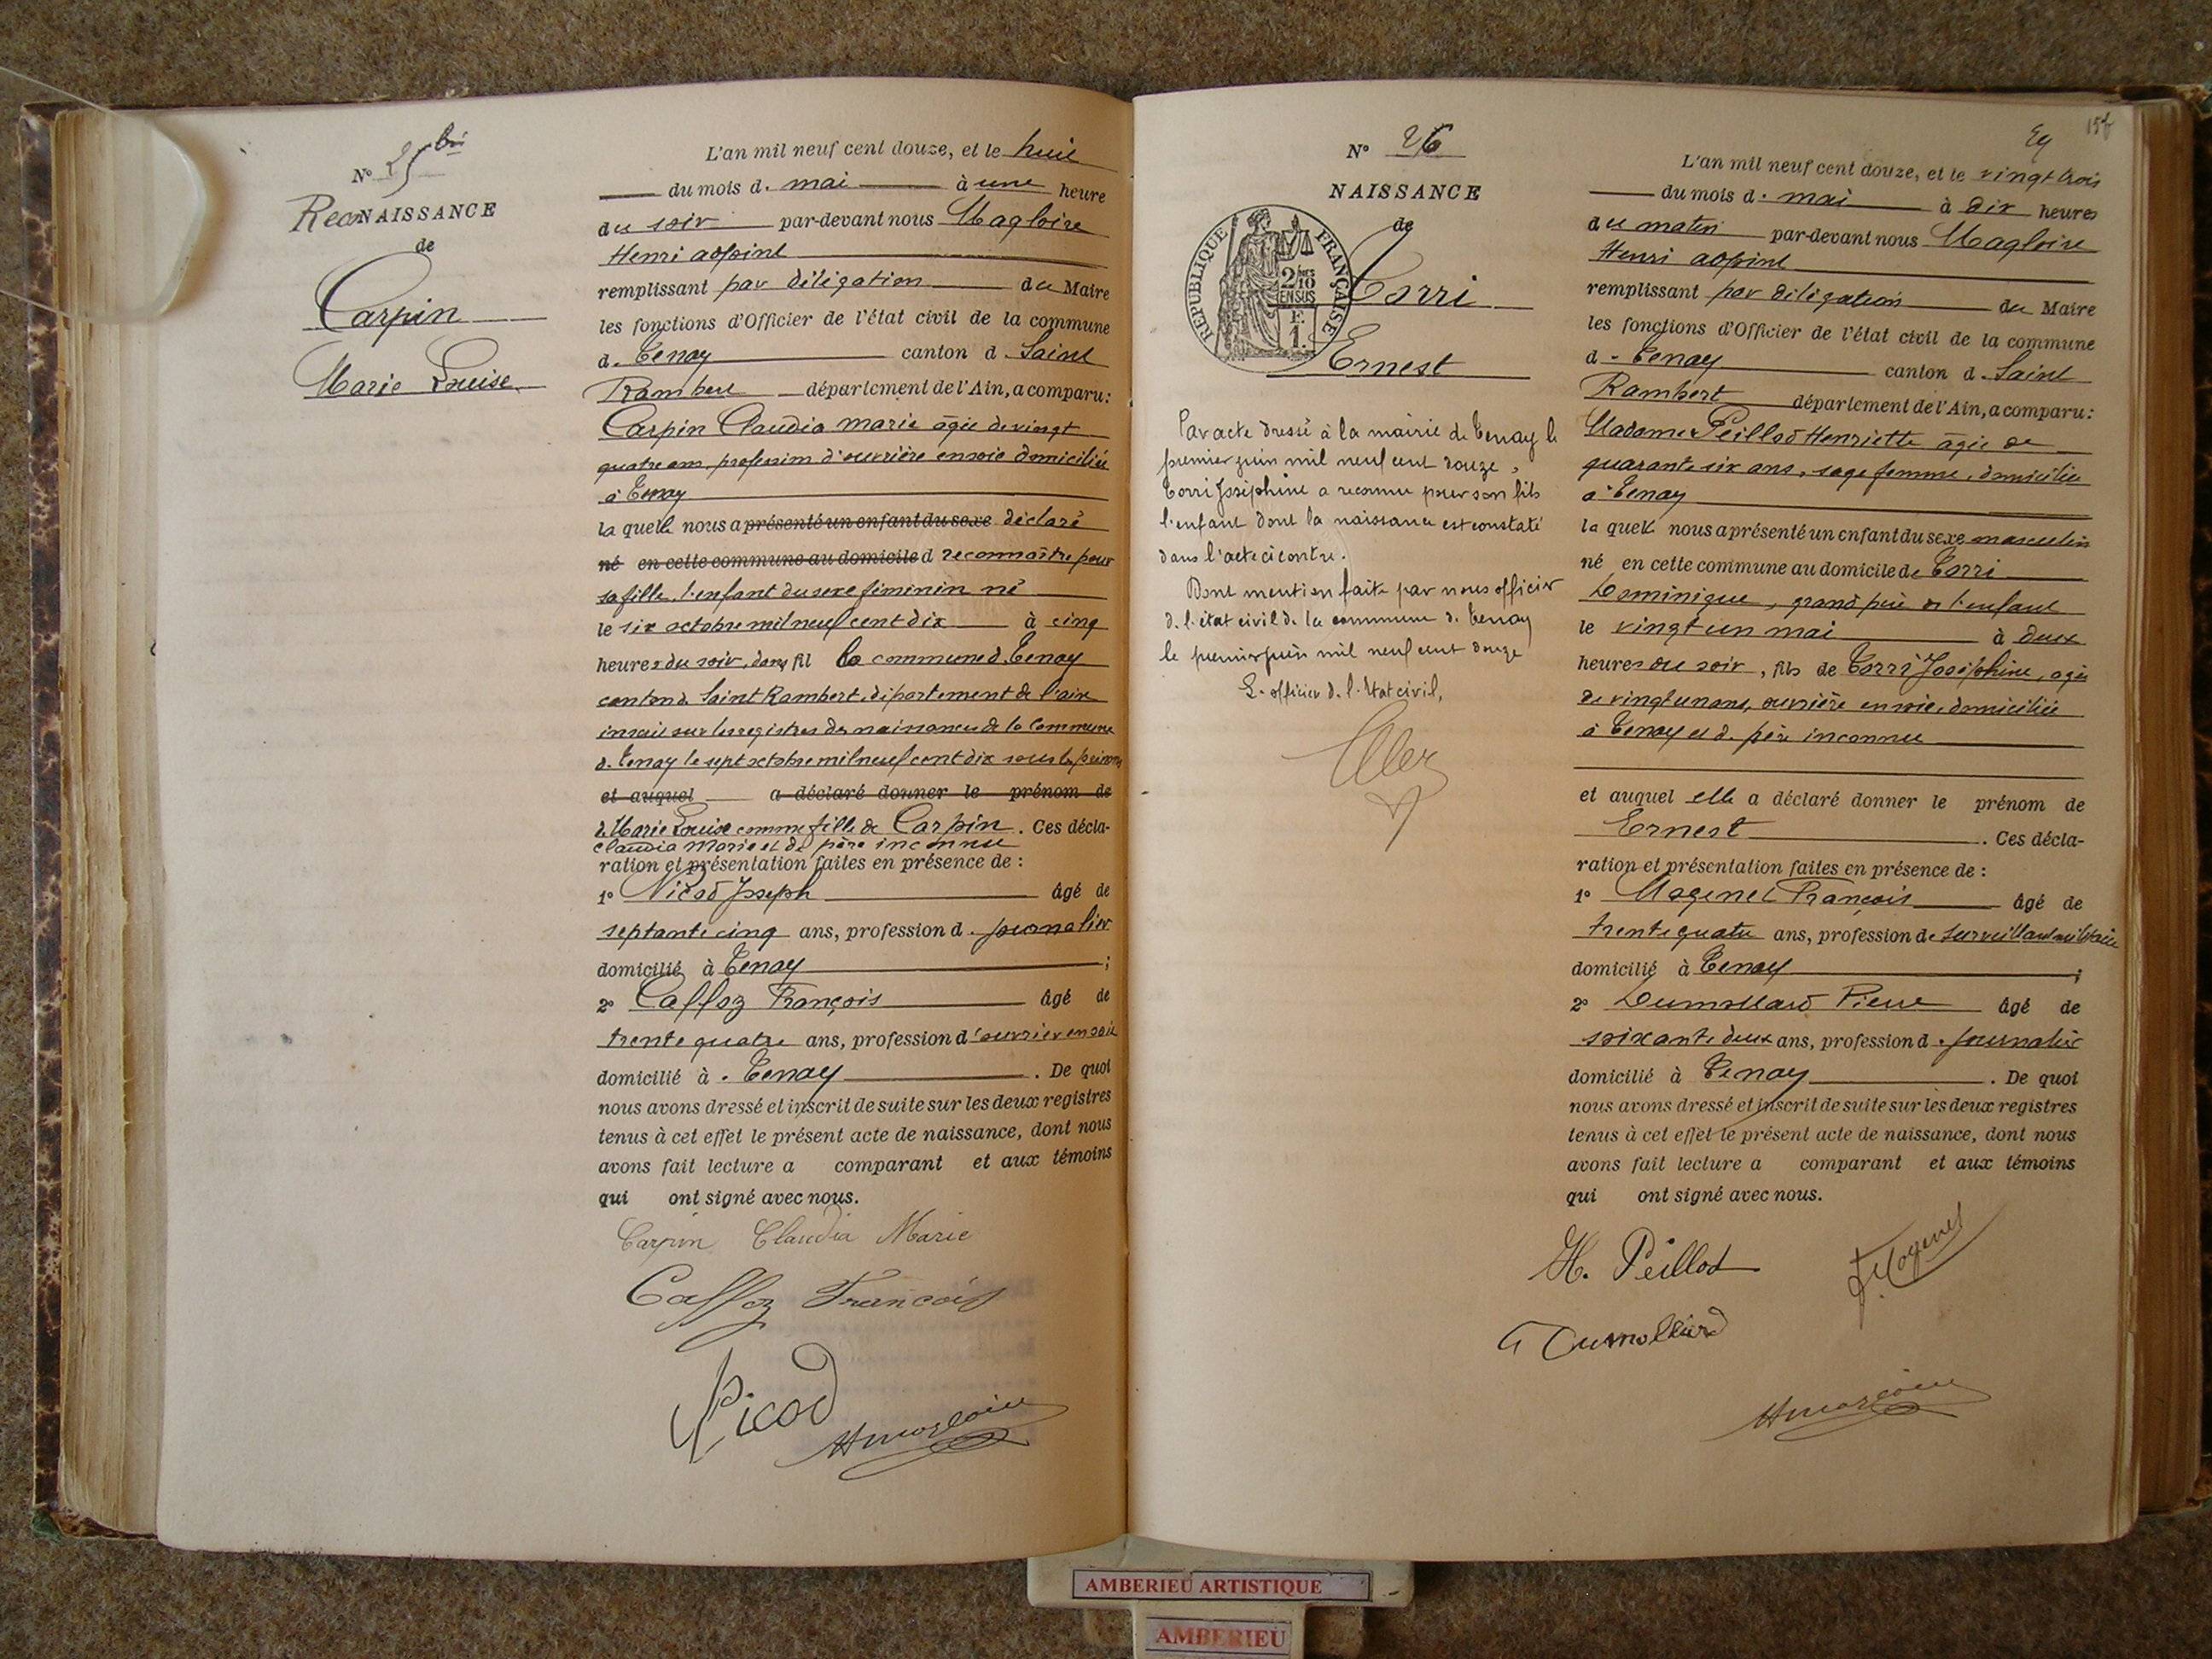 N° 25 bis
RecoNAISSANCE
de
Carpin
Marie Louise
L'an mil neuf cent douze, et le huit
du mois d. mai à une heure
du soir par-devant nous Magloire
Henri adjoint
remplissant par déligation du Maire
les fonctions d'Officier de l'état civil de la commune
d. Tenay canton d Saint
Rambert département de l'Ain, a comparu:
Carpin Claudia marie âgée de vingt
quatre ans, profession d'ouvrière en soie domiciliée
à Tenay
la quelle nous a présenté un enfant du sexe déclaré
né en cette commune au domicile d reconnaître pour
sa fille, l'enfant du sexe féminin né
le six octobre mil neuf cent dix à cinq
heures du soir, dans la commune d. Tenay
canton de Saint Rambert, département de l'ain
inscrit sur les registres des naissances de la Commune
d. Tenay le sept octobre mil neuf cent dix sous les prénoms
et auquel a déclaré donner le prénom de
de Marie Louise comme fille de Carpin . Ces décla-
Claudia Marie et de père inconnu
ration et présentation faites en présence de :
1° Nicod Joseph âgé de
septante cinq ans, profession d. journalier
domicilié à Tenay ;
2° Caffoz François âgé de
trente quatre ans, profession d'ouvrier en soie
domicilié à . Tenay . De quoi
nous avons dressé et inscrit de suite sur les deux registres
tenus à cet effet le présent acte de naissance, dont nous
avons fait lecture a comparant et aux témoins
qui ont signé avec nous.
Carpin Claudia Marie
Caffoz François
Nicod
HMagloire
N° 26
NAISSANCE
de
Torri
Ernest
REPUBLIQUE FRANÇAISE
2/10
EN SUS
F.
1.
Par acte dressé à la mairie de Tenay le
premier juin mil neuf cent douze,
Torri Joséphine a reconnu pour son fils
l'enfant dont la naissance est constaté
dans l'acte ci contre.
Dont mention faite par nous officier
d. l'état civil de la commune d. Tenay
le premier juin mil neuf cent douze
L. officier d. l'état civil,
L'an mil neuf cent douze, et le vingt trois
du mois d. mai à dix heures
du matin par-devant nous Magloire
Henri adjoint
remplissant par déligation du Maire
les fonctions d'Officier de l'état civil de la commune
d. Tenay canton d. Saint
Rambert département de l'Ain, a comparu:
Madame Peillod Henriette âgée de
quarante six ans, sage femme, domiciliée
à Tenay
la quelle nous a présenté un enfant du sexe masculin
né en cette commune au domicile de Torri
Dominique, grand père de l'enfant
le vingt un mai à deux
heures du soir, fils de Torri Joséphine, agée
de vingt un ans, ouvrière en soie, domiciliée
à Tenay et d. père inconnu
et auquel elle a déclaré donner le prénom de
Ernest . Ces décla-
ration et présentation faites en présence de :
1° Mogenet François âgé de
trente quatre ans, profession de surveillant militaire
domicilié à Tenay ;
2° Dumollard Pierre âgé de
soixante deux ans, profession d. journalier
domicilié à Tenay . De quoi
nous avons dressé et inscrit de suite sur les deux registres
tenus à cet effet le présent acte de naissance, dont nous
avons fait lecture a comparant et aux témoins
qui ont signé avec nous.
H. Peillod
F. Mogenet
Dumollard
HMagloire
AMBERIEU ARTISTIQUE
AMBERIEU